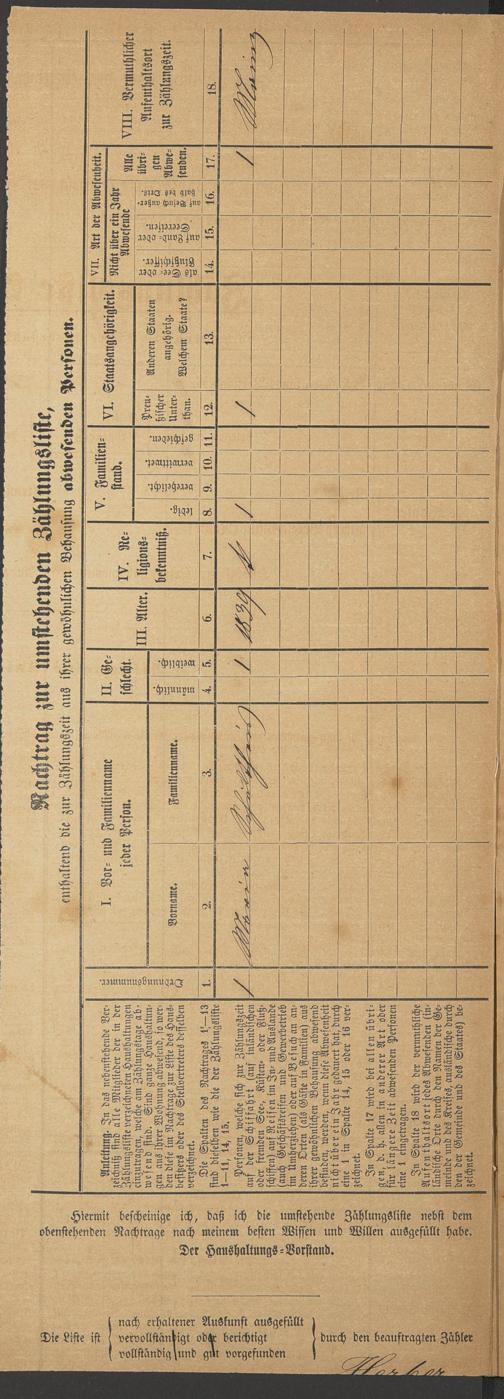 Nachtrag zur umstehenden Zählungsliste,
enthaltend die zur Zählungszeit aus ihrer gewöhnlichen Behausung abwesenden Personen.
Anleitung. In das nebenstehende Verzeichniß sind alle Mitglieder der in der
Zählungsliste verzeichneten Haushaltungen
einzutragen, welche am Zählungstage abwesend sind. Sind ganze Haushaltungen aus ihrer Wohnung abwesend, so werden diese im Nachtrage zur Liste des Hausbesitzers oder des Stellvertreters desselben
verzeichnet.
Die Spalten des Nachtrages 1—13
sind dieselben wie die der Zählungsliste
1—11, 14, 15.
Personen, welche sich zur Zählungszeit
auf der Schifffahrt (auf inländischen
oder fremden See-, Küsten- oder Flußschiffen) auf Reisen im In- und Auslande
(auch Geschäftsreisen und Gewerbebetrieb
im Umherziehen) oder auf Besuch an anderen Orten (als Gäste in Familien) aus
ihrer gewöhnlichen Behausung abwesend
befinden, werden, wenn diese Abwesenheit
nicht über ein Jahr gedauert hat, durch
eine 1 in Spalte 14, 15 oder 16 verzeichnet.
In Spalte 17 wird bei allen übrigen, d. h. allen in anderer Art oder
für längere Zeit abwesenden Personen
eine 1 eingetragen.
In Spalte 18 wird der vermuthliche
Aufenthaltsort jedes Abwesenden (inländische Orte durch den Namen der Gemeinde und des Kreises, ausländische durch
den der Gemeinde und des Staates) bezeichnet.
Ordnungsnummer.
I. Vor- und Familienname
jeder Person.
Vorname.
Familienname.
II. Geschlecht.
männlich.
weiblich.
III. Alter.
IV. Religionsbekenntniß.
V. Familienstand.
ledig.
verehelicht.
verwittwet.
geschieden.
VI. Staatsangehörigkeit.
Preußischer Unterthan.
Anderen Staaten
angehörig.
Welchem Staate?
VII. Art der Abwesenheit.
Nicht über ein Jahr
Abwesende
als See- oder
Flußschiffer.
auf Land- oder
Seereisen.
auf Besuch außerhalb des Orts.
Alle
übrigen
Abwesenden.
VIII. Vermuthlicher
Aufenthaltsort
zur Zählungszeit.
1. 2. 3. 4. 5. 6. 7. 8. 9. 10. 11. 12. 13. 14. 15. 16. 17. 18.
1 Maria 1 1839 1 1 1 Mainz
Hiermit bescheinige ich, daß ich die umstehende Zählungsliste nebst dem
obenstehenden Nachtrage nach meinem besten Wissen und Willen ausgefüllt habe.
Der Haushaltungs-Vorstand.
Die Liste ist
nach erhaltener Auskunft ausgefüllt
vervollständigt oder berichtigt
vollständig und gut vorgefunden
durch den beauftragten Zähler